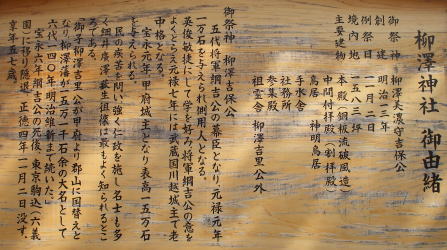 柳澤神社 御由緒
御祭神 柳澤美濃守吉保公
創建 明治一三年
例祭日 一一月二日
境内地 一五八三坪
主要建物 本殿(銅板流破風造)
中間村拝殿(割拝殿)
鳥居(神明鳥居)
手水舎
社務所
参集殿
祖霊舎 柳澤吉里公外
御祭神 柳澤吉保公
五代将軍綱吉公の幕臣となり元禄元年
一万石を与えられ側用人となる。
英俊敏捷にして学を好み将軍綱吉公の意を
よくとらえ元禄七年には武蔵国川越城主で老
中格となる。
宝永元年、甲府城主となり表高一五万石
を与えられる。
民の疾苦を問い強く仁政を施し名士を多
く細井廣澤荻生徂徠は最もよく知られるとこ
ろである。
御子柳澤吉里公が甲府より郡山に国替えと
なり柳澤藩が一五万一千石余の大名として
六代一四〇年明治維新まで続いた。
宝永六年綱吉公の死後、東京駒込(六義
園)に移り隠退、正徳四年一一月二日没す。
享年五七歳。